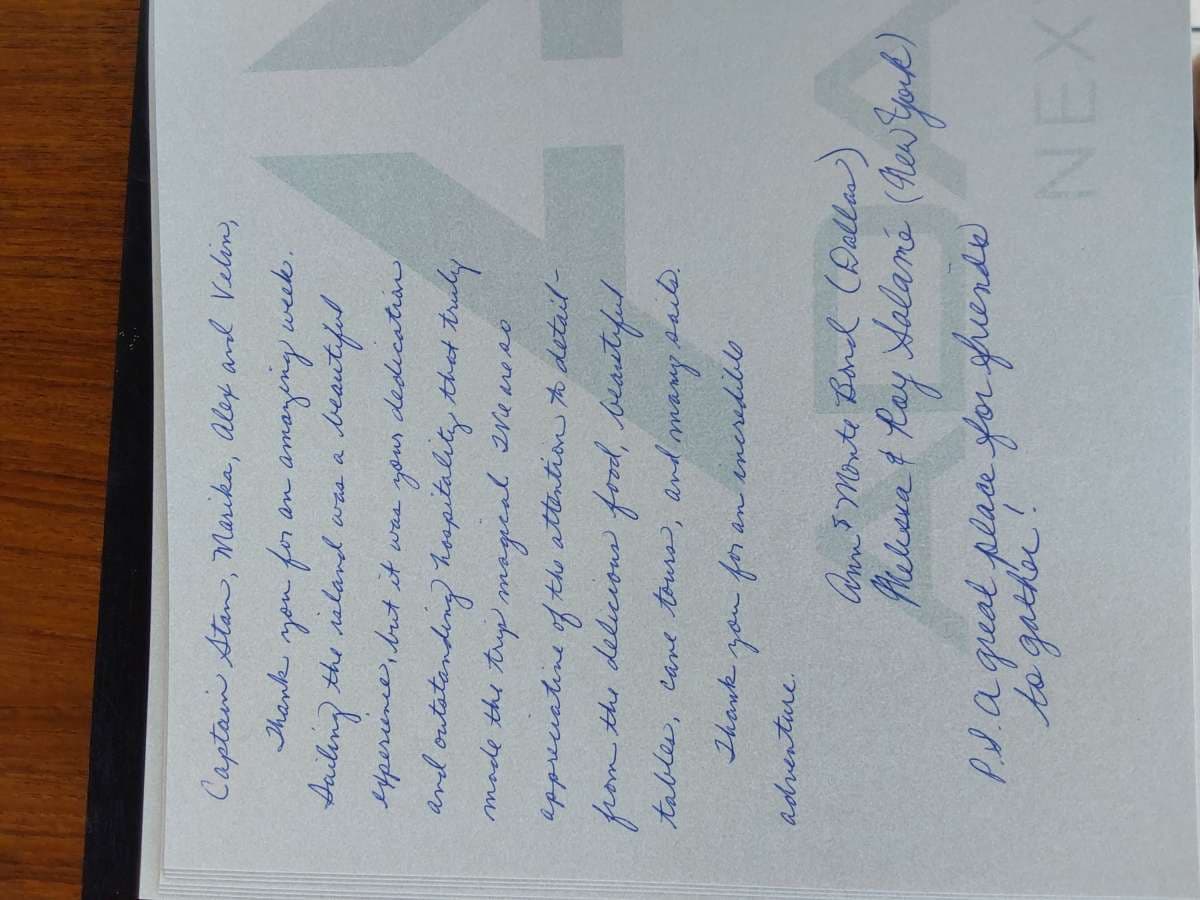 Captain Stan, Marika, Alex and Velin,
Thank you for an amazing week.
Sailing the island was a beautiful
experience, but it was your dedication
and outstanding hospitality that truly
made the trip magical. We were so
appreciative of the attention to detail -
from the delicious food, beautiful
tables, cave tours, and many sails.
Thank you for an incredible
adventure.
Ann & Monte Bond (Dallas)
Melissa & Ray Salamé (New York)
P.S. A great place for friends
to gather!
ADA
NEX